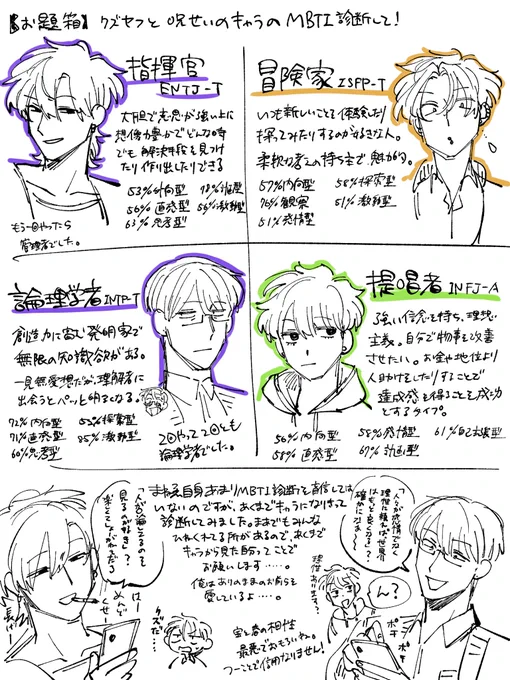 【お題箱】クズヤフと呪せいのキャラのMBTI診断して!
指揮官
ENTJ-T
大胆で意思が強い上に
想像力豊かでどんな時
でも解決手段を見つけ
たり作り出したりできる
53%外向型
56%直感型
63%思考型
もう一回やったら
管理者でした。
冒険家
ISFP-T
いつも新しいことを体験したり
探ってみたりするのが好きな人。
柔軟な考えの持ち主で、魅力的。
57%内向型
58%探索型
76%観察
51%激動型
51%感情型
論理学者
INTP-T
創造力に富む発明家で
無限の知識欲がある。
一見無愛想だが、理解者に
出会うとパーッと明るくなる。
72%内向型
52%探索型
71%直感型
85%激動型
60%思考型
2回やって2回とも
論理学者でした。
提唱者
INFJ-A
強い信念を持ち、理想
主義。自分で物事を改善
させたい。お金や地位より
人助けをしたりすることで
達成感を得ることを成功
とするタイプ。
56%内向型
58%感情型
61%自己主張型
58%直感型
67%計画型
まぁ私自身あまりMBTI診断を重信しては
いないのですが、あくまでキャラになりきって
診断してみました。
あるので、あくまで
キャラから見た自分ってことで
お願いします……。
俺はありのままのお前らを
愛しているよ……。
クズだ…
最悪でおもろいわ。
つーことで信用なりません!
「人々が感情でなく
理性に頼れば世界
はもっと良くなる」?
確かになぁ〜
ん?
ポチ
ポチ
はー
めんど
くせー
長ぇ〜